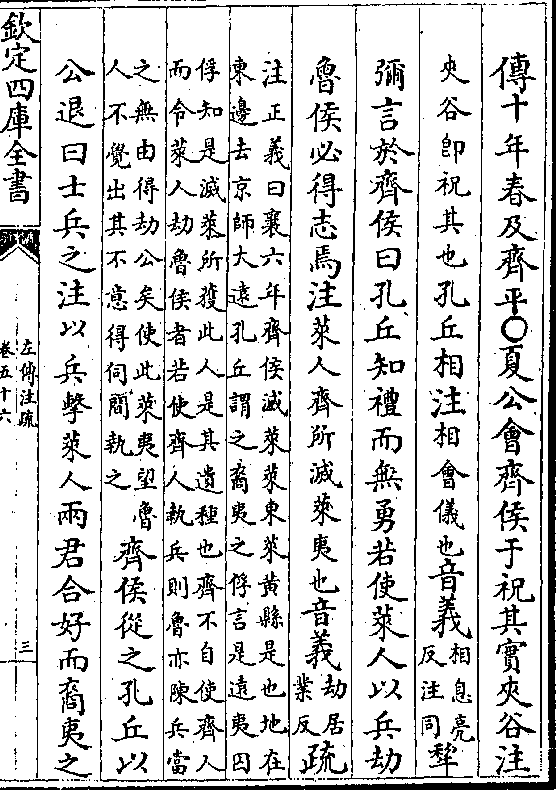 傳十年春及齊平〇夏公會齊侯于祝其實夾谷注
夾谷卽祝其也孔丘相注相會儀也音義相息亮反注同犂
彌言於齊侯曰孔丘知禮而無勇若使萊人以兵劫
魯侯必得志焉注萊人齊所滅萊夷也音義劫居業反疏
注正義曰襄六年齊侯滅萊萊東萊黃縣是也地在
東邊去京師大遠孔丘謂之裔夷之俘言是遠夷囚
俘知是滅萊所獲此人是其遺種也齊不自使齊人
而令萊人劫魯侯者若使齊人執兵則魯亦陳兵當
之無由得劫公矣使此萊夷望魯
人不覺出其不意得伺間執之
齊侯從之孔丘以
公退曰士兵之注以兵擊萊人兩君合好而裔夷之
欽定四庫全書
左傳注疏
卷五十六
三